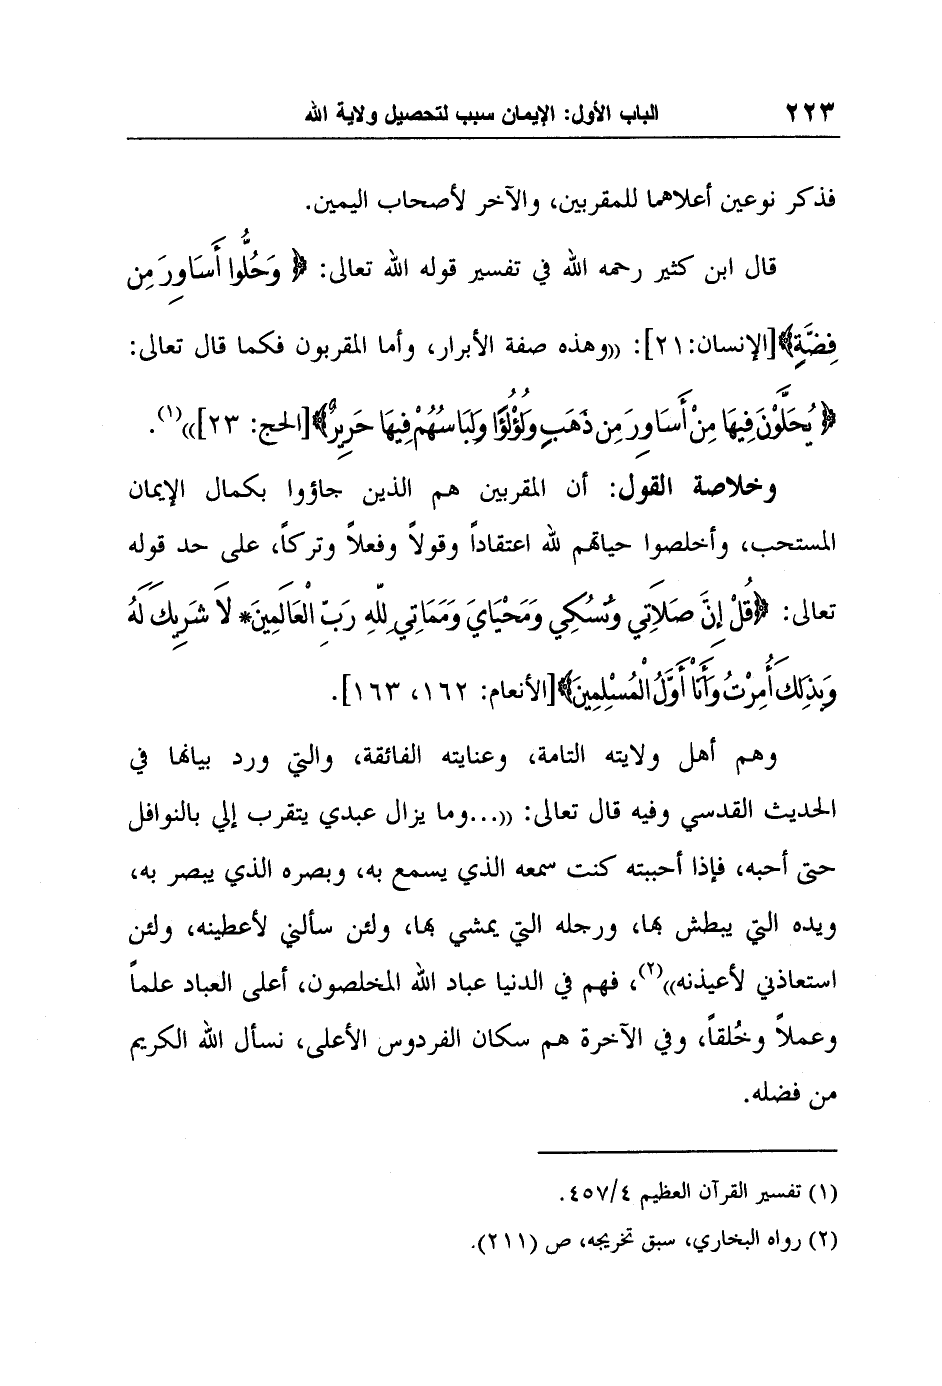 ٢٢٣ الباب الأول: الإيمان سبب لتحصيل ولاية الله
فذكر نوعين أعلاهما للمقربين، والآخر لأصحاب اليمين.
قال ابن كثير رحمه الله في تفسير قوله الله تعالى: ﴿وَحُلُّوا أَسَاوِرَ مِن
فِضَّةٍ﴾[الإنسان:٢١]: ((وهذه صفة الأبرار، وأما المقربون فكما قال تعالى:
﴿يُحَلَّوْنَ فِيهَا مِنْ أَسَاوِرَ مِن ذَهَبٍ وَلُؤْلُؤًا وَلِبَاسُهُمْ فِيهَا حَرِيرٌ﴾[الحج: ٢٣]))(١).
وخلاصة القول: أن المقربين هم الذين جاؤوا بكمال الإيمان
المستحب، وأخلصوا حياتهم لله اعتقاداً وقولاً وفعلاً وتركاً، على حد قوله
تعالى: ﴿قُلْ إِنَّ صَلَاتِي وَنُسُكِي وَمَحْيَايَ وَمَمَاتِي لِلَّهِ رَبِّ الْعَالَمِينَ* لَا شَرِيكَ لَهُ
وَبِذَلِكَ أُمِرْتُ وَأَنَا أَوَّلُ الْمُسْلِمِينَ﴾[الأنعام: ١٦٢، ١٦٣].
وهم أهل ولايته التامة، وعنايته الفائقة، والتي ورد بيانها في
الحديث القدسي وفيه قال تعالى: ((...وما يزال عبدي يتقرب إلي بالنوافل
حتى أحبه، فإذا أحببته كنت سمعه الذي يسمع به، وبصره الذي يبصر به،
ويده التي يبطش بها، ورجله التي يمشي بها، ولئن سألني لأعطينه، ولئن
استعاذني لأعيذنه))(٢)، فهم في الدنيا عباد الله المخلصون، أعلى العباد علماً
وعملاً وخُلقاً، وفي الآخرة هم سكان الفردوس الأعلى، نسأل الله الكريم
من فضله.
(١) تفسير القرآن العظيم ٤٥٧/٤.
(٢) رواه البخاري، سبق تخريجه، ص (٢١١).